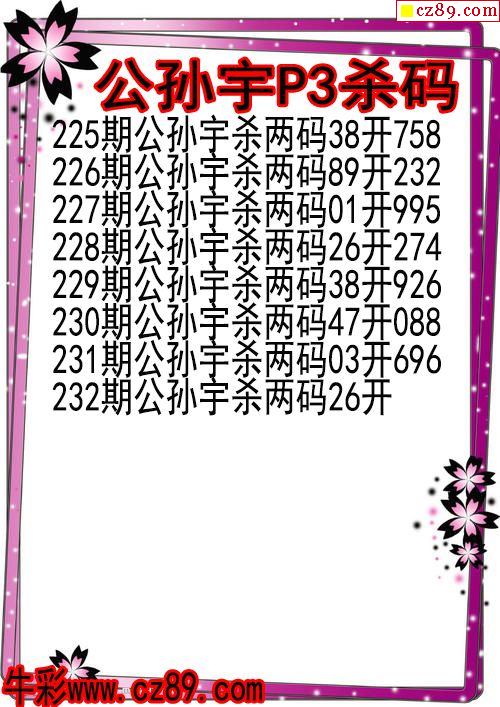 cz89.com
公孙宇P3杀码
225期公孙宇杀两码38开758
226期公孙宇杀两码89开232
227期公孙宇杀两码01开995
228期公孙宇杀两码26开274
229期公孙宇杀两码38开926
230期公孙宇杀两码47开088
231期公孙宇杀两码03开696
232期公孙宇杀两码26开
牛彩www.cz89.com